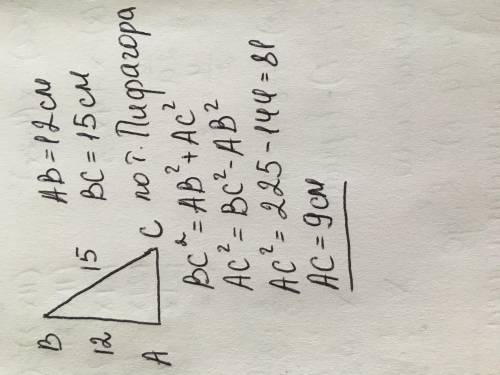 AB = 12 см
BC = 15 см
B
12
15
A
C
по т. Пифагора
BC² = AB² + AC²
AC² = BC² - AB²
AC² = 225 - 144 = 81
AC = 9 см